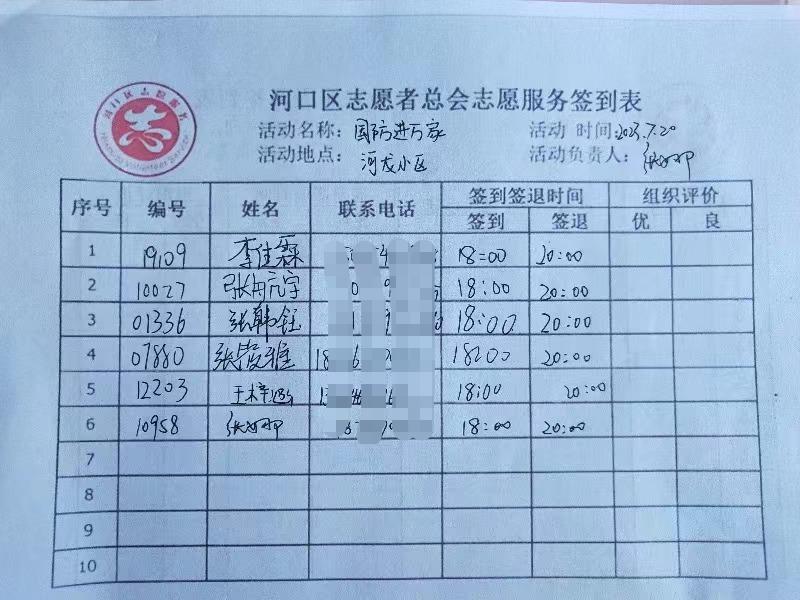 河口区志愿者总会志愿服务签到表
活动名称：国防进万家 活动 时间：2023.7.20
活动地点：河龙小区 活动负责人：
河口区志愿服务
Hekouqu Volunteer Service
序号 编号 姓名 联系电话 签到签退时间 组织评价
签到 签退 优 良
1 19109 李佳霖 18:00 20:00
2 10027 18:00 20:00
3 01336 张韩钰 18:00 20:00
4 07880 张雅 18:00 20:00
5 12203 王梓 18:00 20:00
6 10958 张 18:00 20:00
7
8
9
10